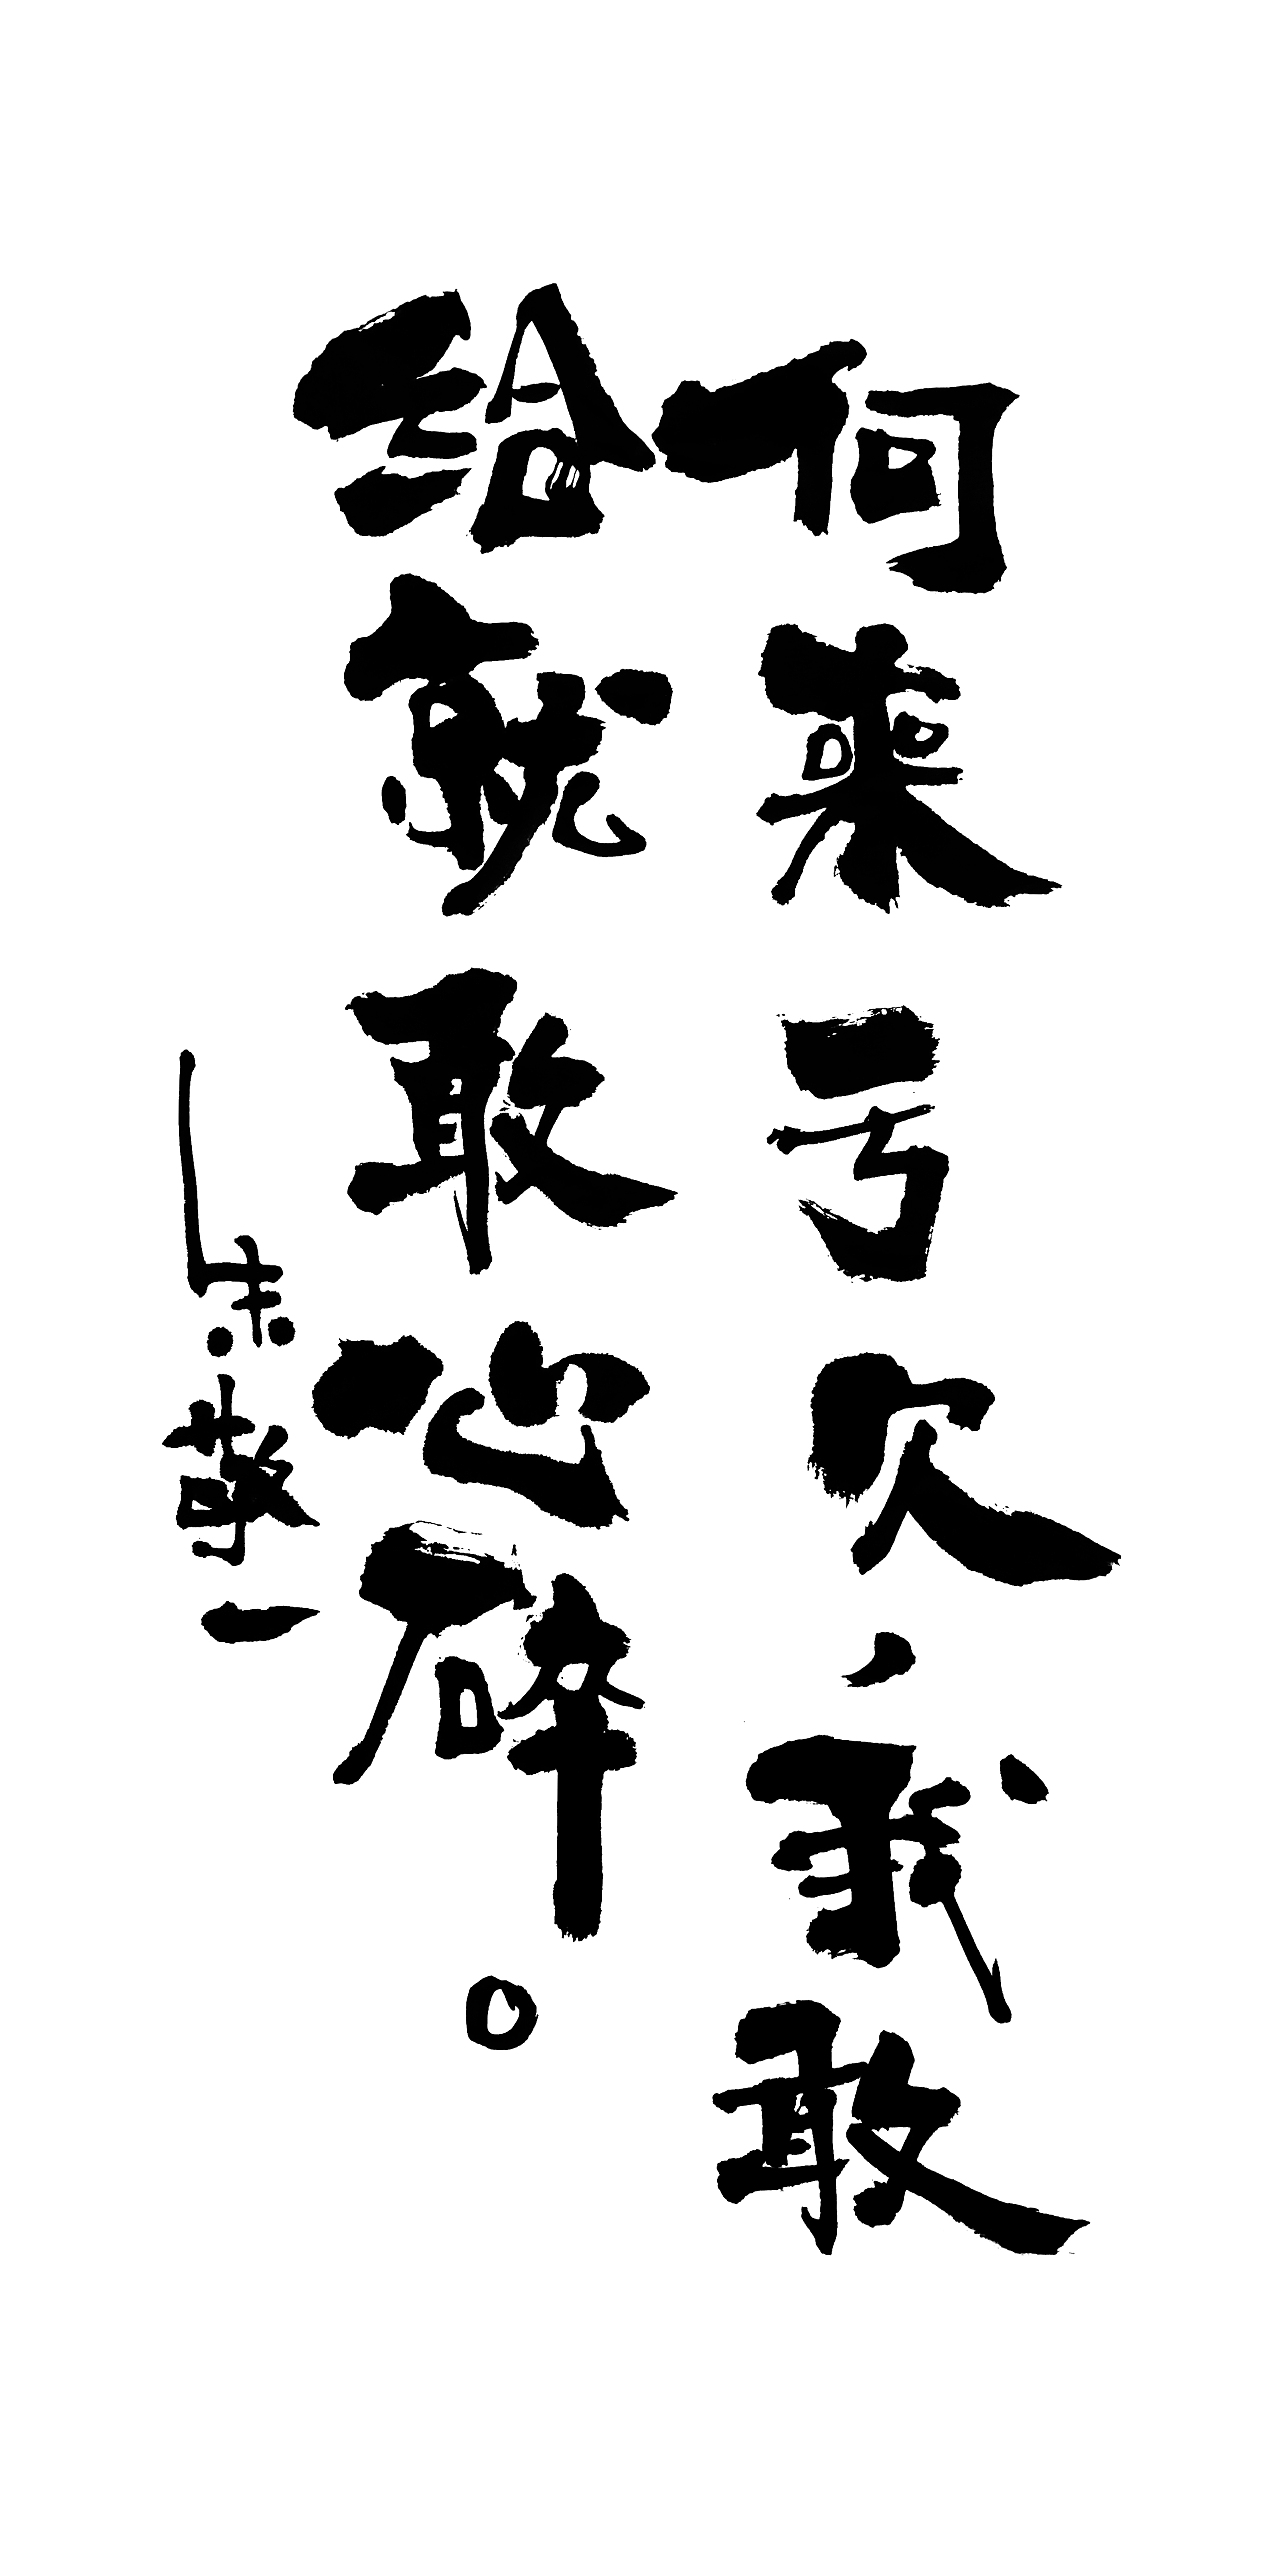 何来亏欠，我敢
给就敢心碎。
朱敬一